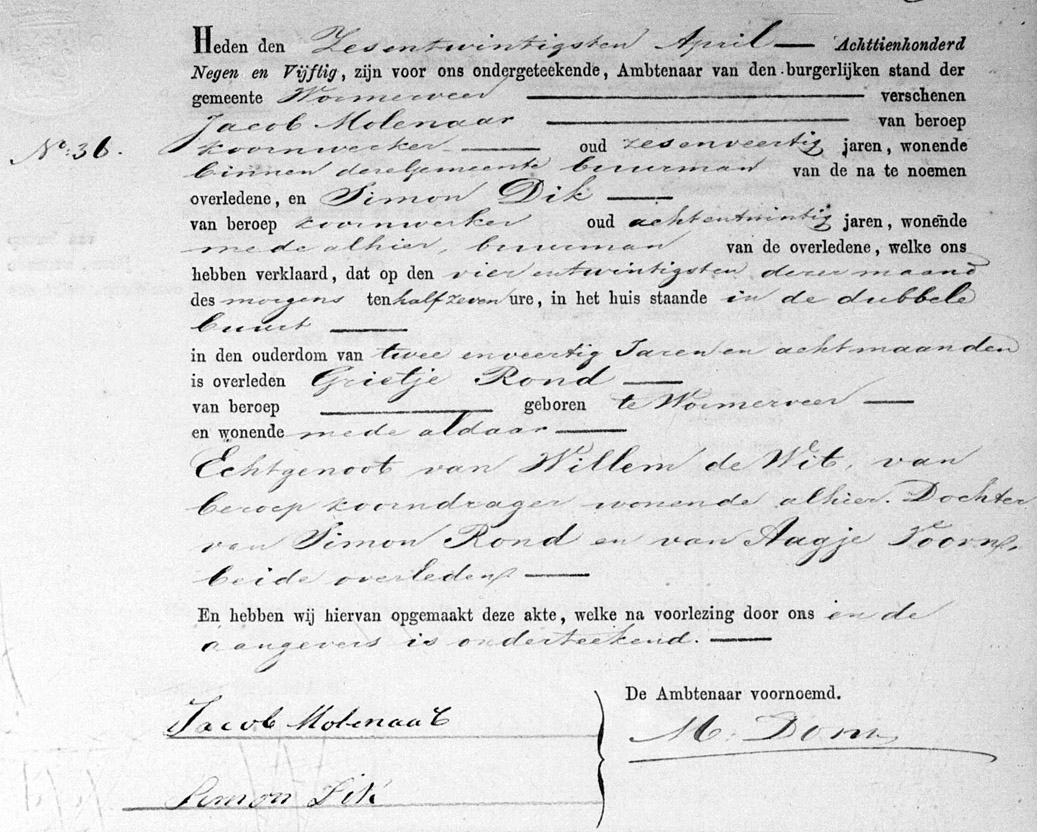 Heden den Zesentwintigsten April — Achttienhonderd
Negen en Vijftig, zijn voor ons ondergeteekende, Ambtenaar van den burgerlijken stand der
gemeente Wormerveer verschenen
Jacob Molenaar van beroep
No. 36. koornwerker — oud zesenveertig jaren, wonende
binnen dezelgemeente buurman van de na te noemen
overledene, en Simon Dik —
van beroep koornwerker oud achtentwintig jaren, wonende
mede alhier, buurman van de overledene, welke ons
hebben verklaard, dat op den vier entwintigsten dezer maand
des morgens ten half zeven ure, in het huis staande in de dubbele
buurt —
in den ouderdom van twee enveertig Jaren en acht maanden
is overleden Grietje Rond —
van beroep — geboren te Wormerveer —
en wonende mede aldaar —
Echtgenoot van Willem de Wit, van
beroep koorndrager wonende alhier. Dochter
van Simon Rond en van Aagje Toorn,
beide overleden —
En hebben wij hiervan opgemaakt deze akte, welke na voorlezing door ons en de
aangevers is onderteekend. —
De Ambtenaar voornoemd.
Jacob Molenaar
M. Dom
Simon Dik